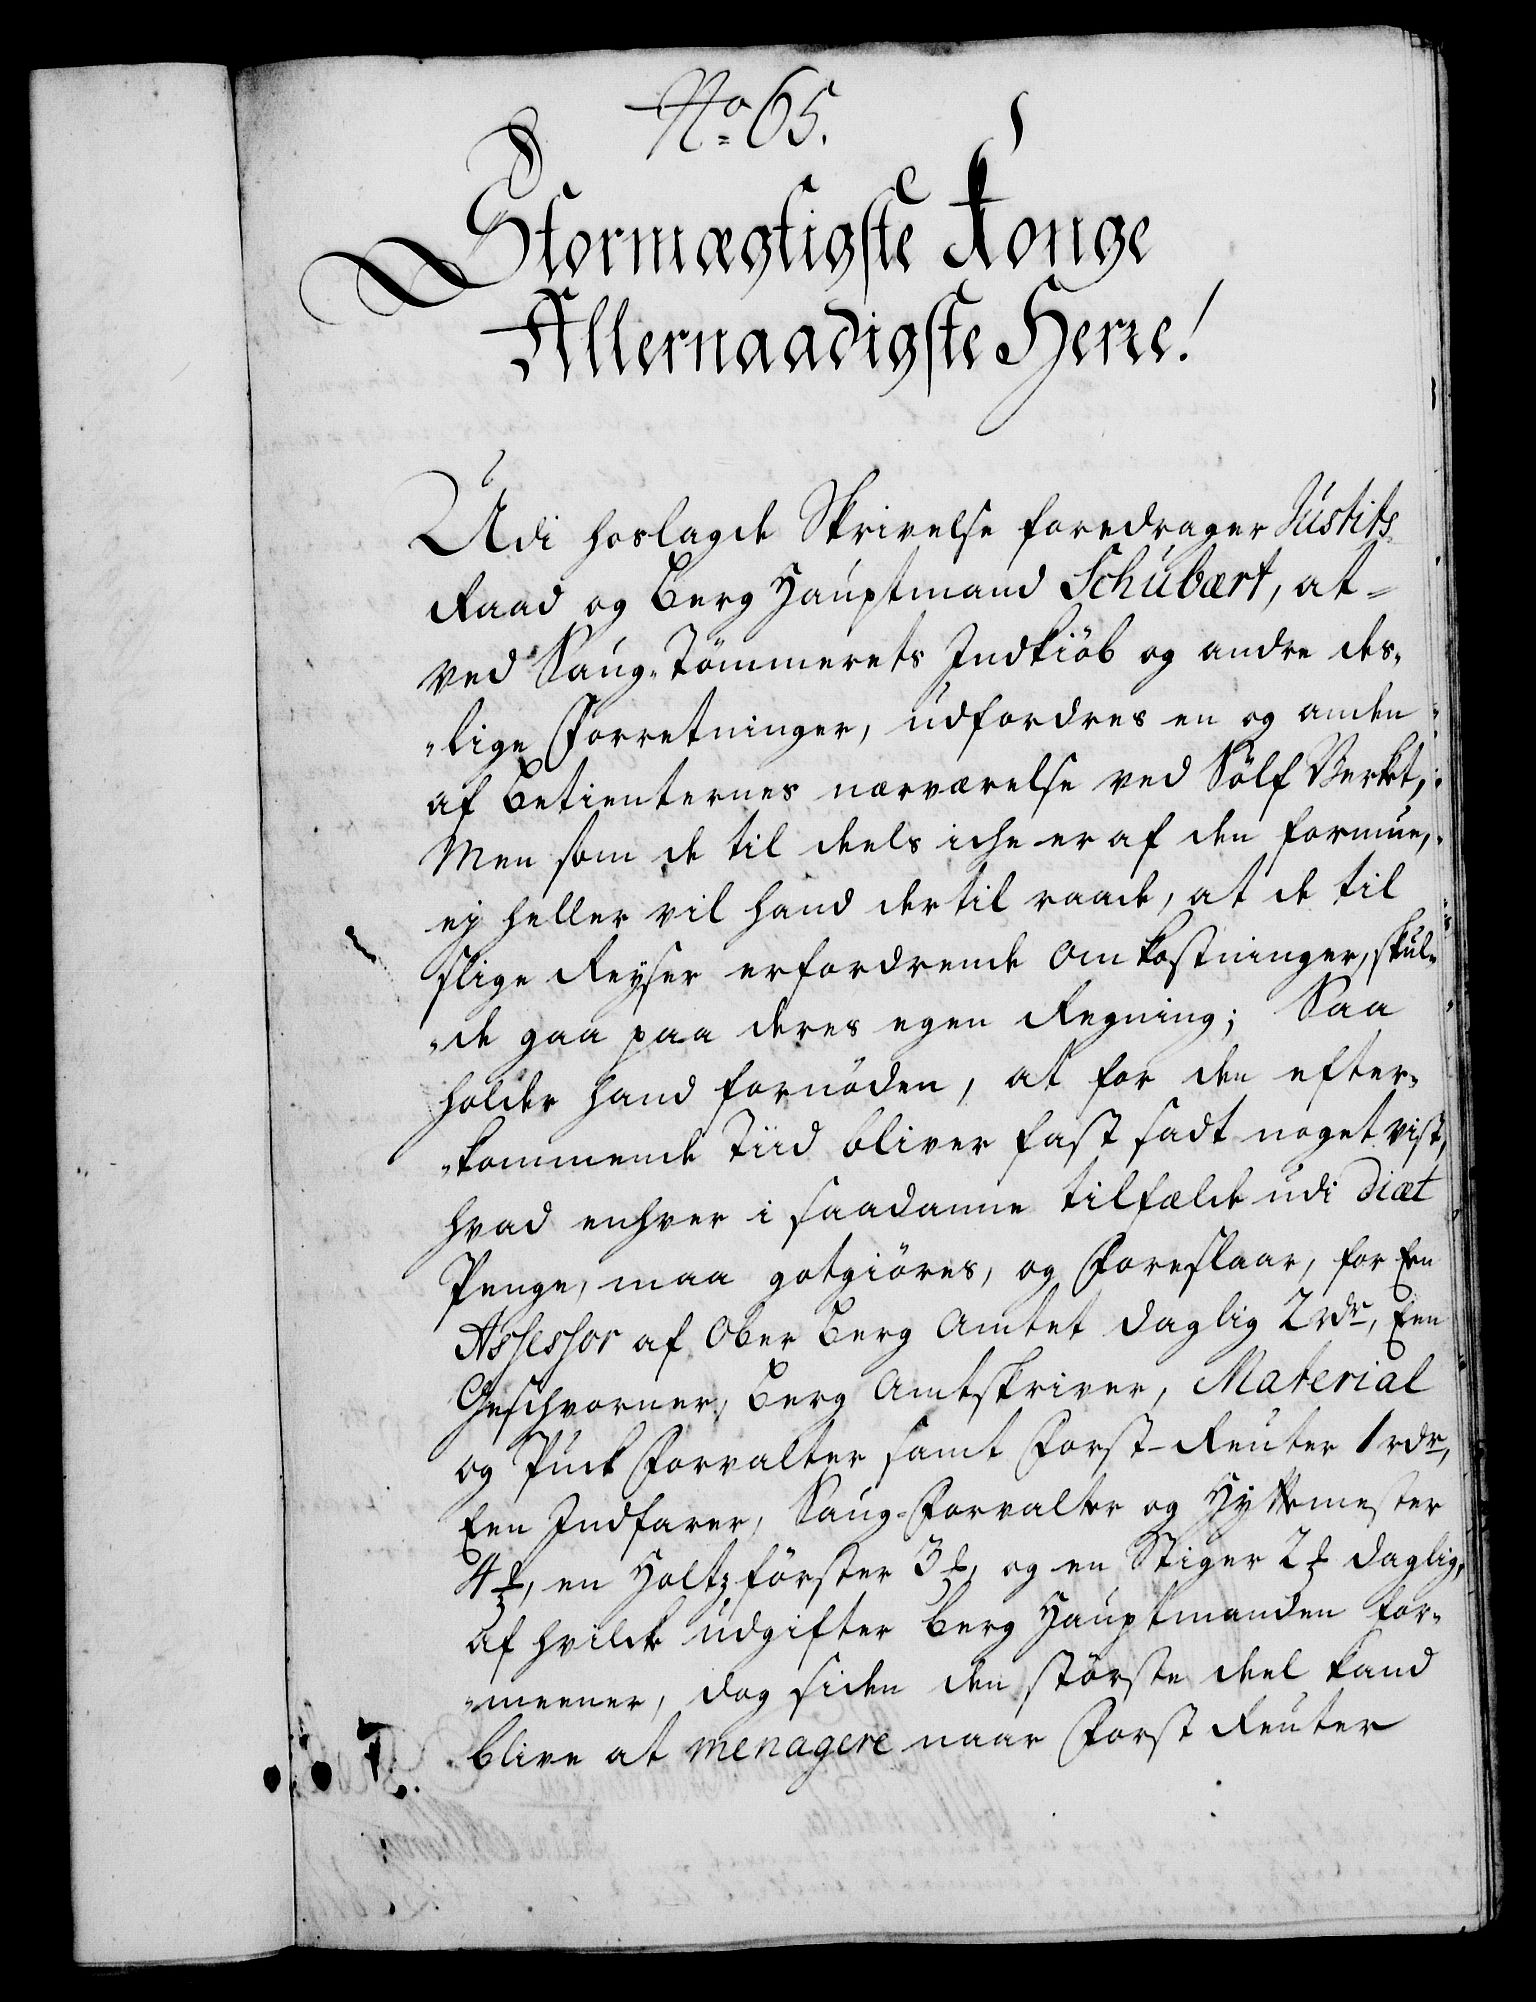 No 65.
Stormægtigste Konge
Allernaadigste Herre!
Udi hoslagde Skrivelse foredrager Justits
Raad og Berg Hauptmand Schubært, at
ved Saug-Tömmerets Indkiöb og andre des-
lige Forretninger, udfordres en og anden
af Betienternes nærværelse ved Sölf Verket,
Men som de til deels iche er af den formue,
ej heller vil hand dertil raade, at de til
slige Reyser erfordrende Omkostninger, skul-
de gaa paa deres egen Regning; Saa
holder hand fornöden, at for den efter-
kommende Tiid bliver fast sadt noget vist,
hvad enhver i saadanne tilfælde udi Diæt
Penge, maa gotgiöres, og Foreslaar, for Een
Assessor af Ober Berg Amtet daglig 2 rdr, Een
Geschvorner, Berg Amtskriver, Material
og Puck Forvalter samt Forst-Reuter 1 rdr,
Een Indfarer, Saug-Forvalter og Hyttemester
4 ꝶ, en Holtzförster 3 ꝶ, og en Stiger 2 ꝶ daglig,
Af hvilcke udgifter Berg Hauptmanden for-
meener, dog siden den störste deel kand
blive at menagere naar Forst Reuter